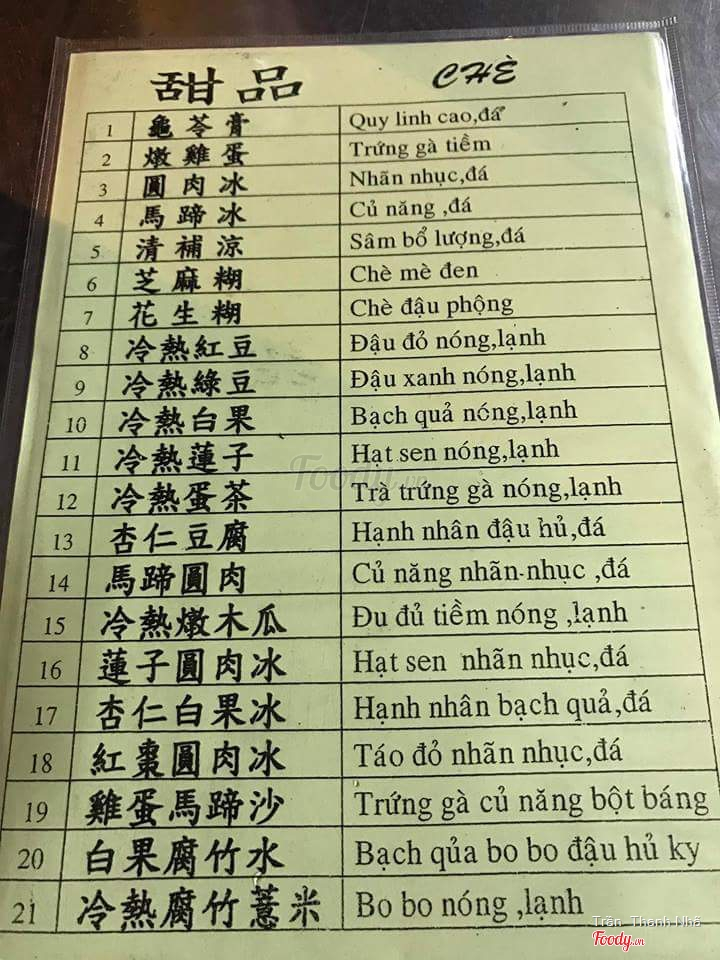 甜品 CHÈ
1 龜苓膏 Quy linh cao,đá
2 燉雞蛋 Trứng gà tiềm
3 圓肉冰 Nhãn nhục,đá
4 馬蹄冰 Củ năng ,đá
5 清補涼 Sâm bổ lượng,đá
6 芝麻糊 Chè mè đen
7 花生糊 Chè đậu phộng
8 冷熱紅豆 Đậu đỏ nóng,lạnh
9 冷熱綠豆 Đậu xanh nóng,lạnh
10 冷熱白果 Bạch quả nóng,lạnh
11 冷熱蓮子 Hạt sen nóng,lạnh
12 冷熱蛋茶 Trà trứng gà nóng,lạnh
13 杏仁豆腐 Hạnh nhân đậu hủ,đá
14 馬蹄圓肉 Củ năng nhãn-nhục ,đá
15 冷熱燉木瓜 Đu đủ tiềm nóng ,lạnh
16 蓮子圓肉冰 Hạt sen nhãn nhục,đá
17 杏仁白果冰 Hạnh nhân bạch quả,đá
18 紅棗圓肉冰 Táo đỏ nhãn nhục,đá
19 雞蛋馬蹄沙 Trứng gà củ năng bột báng
20 白果腐竹水 Bạch qủa bo bo đậu hủ ky
21 冷熱腐竹薏米 Bo bo nóng ,lạnh
Foody.vn
Trần Thanh Nhã
Foody.vn